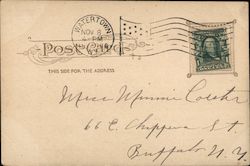 WATERTOWN
NOV 8
4-PM
N.Y.
POST CARD
THIS SIDE FOR THE ADDRESS
Miss Minnie
66 E. Chippewa St.
Buffalo N.Y.